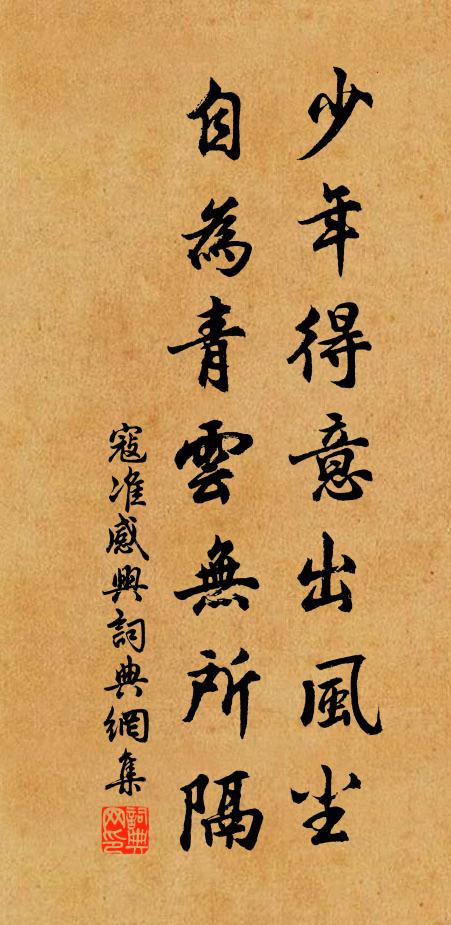 少年得意出風尘
自為青雲無所隔
寇准感興詞典網集
詞典网印